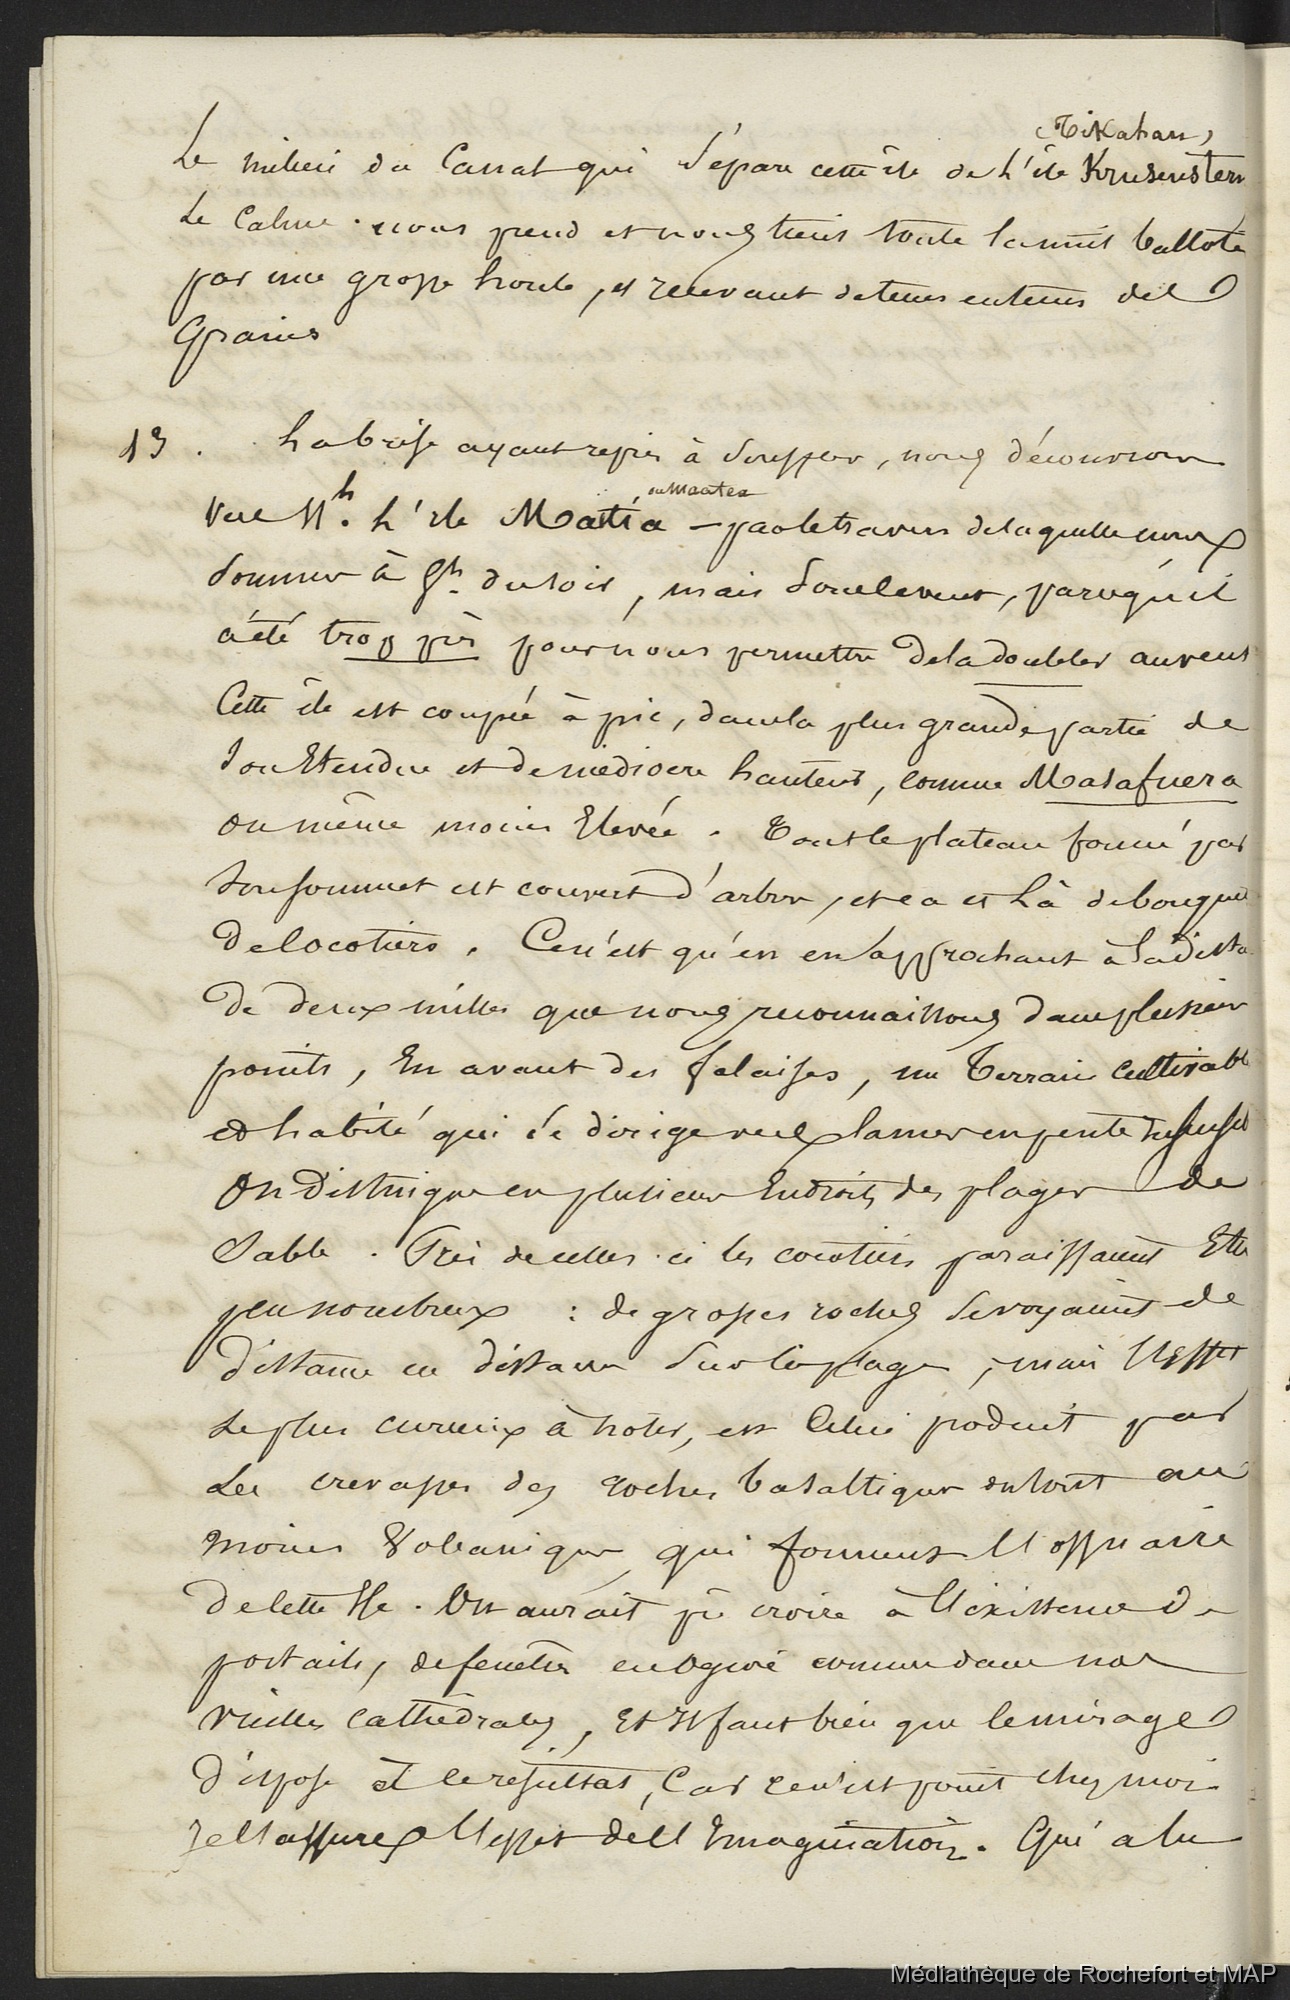 (Tikahau)
Le milieu du Canal qui sépare cette île de l'île Krusenstern
Le Calme nous prend et nous tient toute la nuit balloté
par une grosse houle, et recevant de tems en tems des
Grains
13. La brise ayant repris à souffler, nous découvrons
vers 11h. l'Ile Matia – par le travers de laquelle nous
ou Maatea
sommes à 8h. du soir, mais seulement, parcequ'il
a été trop près pour nous permettre de la doubler au vent
Cette île est coupée à pic, dans la plus grande partie de
son Etendue et de médiocre hauteur, comme Masafuera
ou même moins Elevée. Tout le plateau formé par
son sommet est couvert d'arbres, et ca et là de bouquets
de Cocotiers. Ce n'est qu'en en approchant à la dista
de deux milles que nous reconnaissons dans plusieurs
points, En avant des falaises, un Terrain cultivable
et habité qui se dirige vers la mer en pente
On Distingue en plusieurs Endroits des plages de
Sable. Près de celles-ci les cocotiers paraissaient Etre
peu nombreux : de grosses roches se voyaient de
distance en distance sur la plage, mais l'Effet
Le plus curieux à noter, est Celui produit par
Les crevasses des roches basaltiques ou tout au
moins Volcaniques qui forment l'ossuaire
de cette Ile. On aurait pu croire à l'éxistence de
portails, de fenêtres en Ogive comme dans nos
vieilles Cathédrales, Et Il faut bien que le mirage
dispose à ce résultat, Car ce n'est point chez moi
je l'assure l'effet de l'Imagination. Qui a lu
Médiathèque de Rochefort et MAP